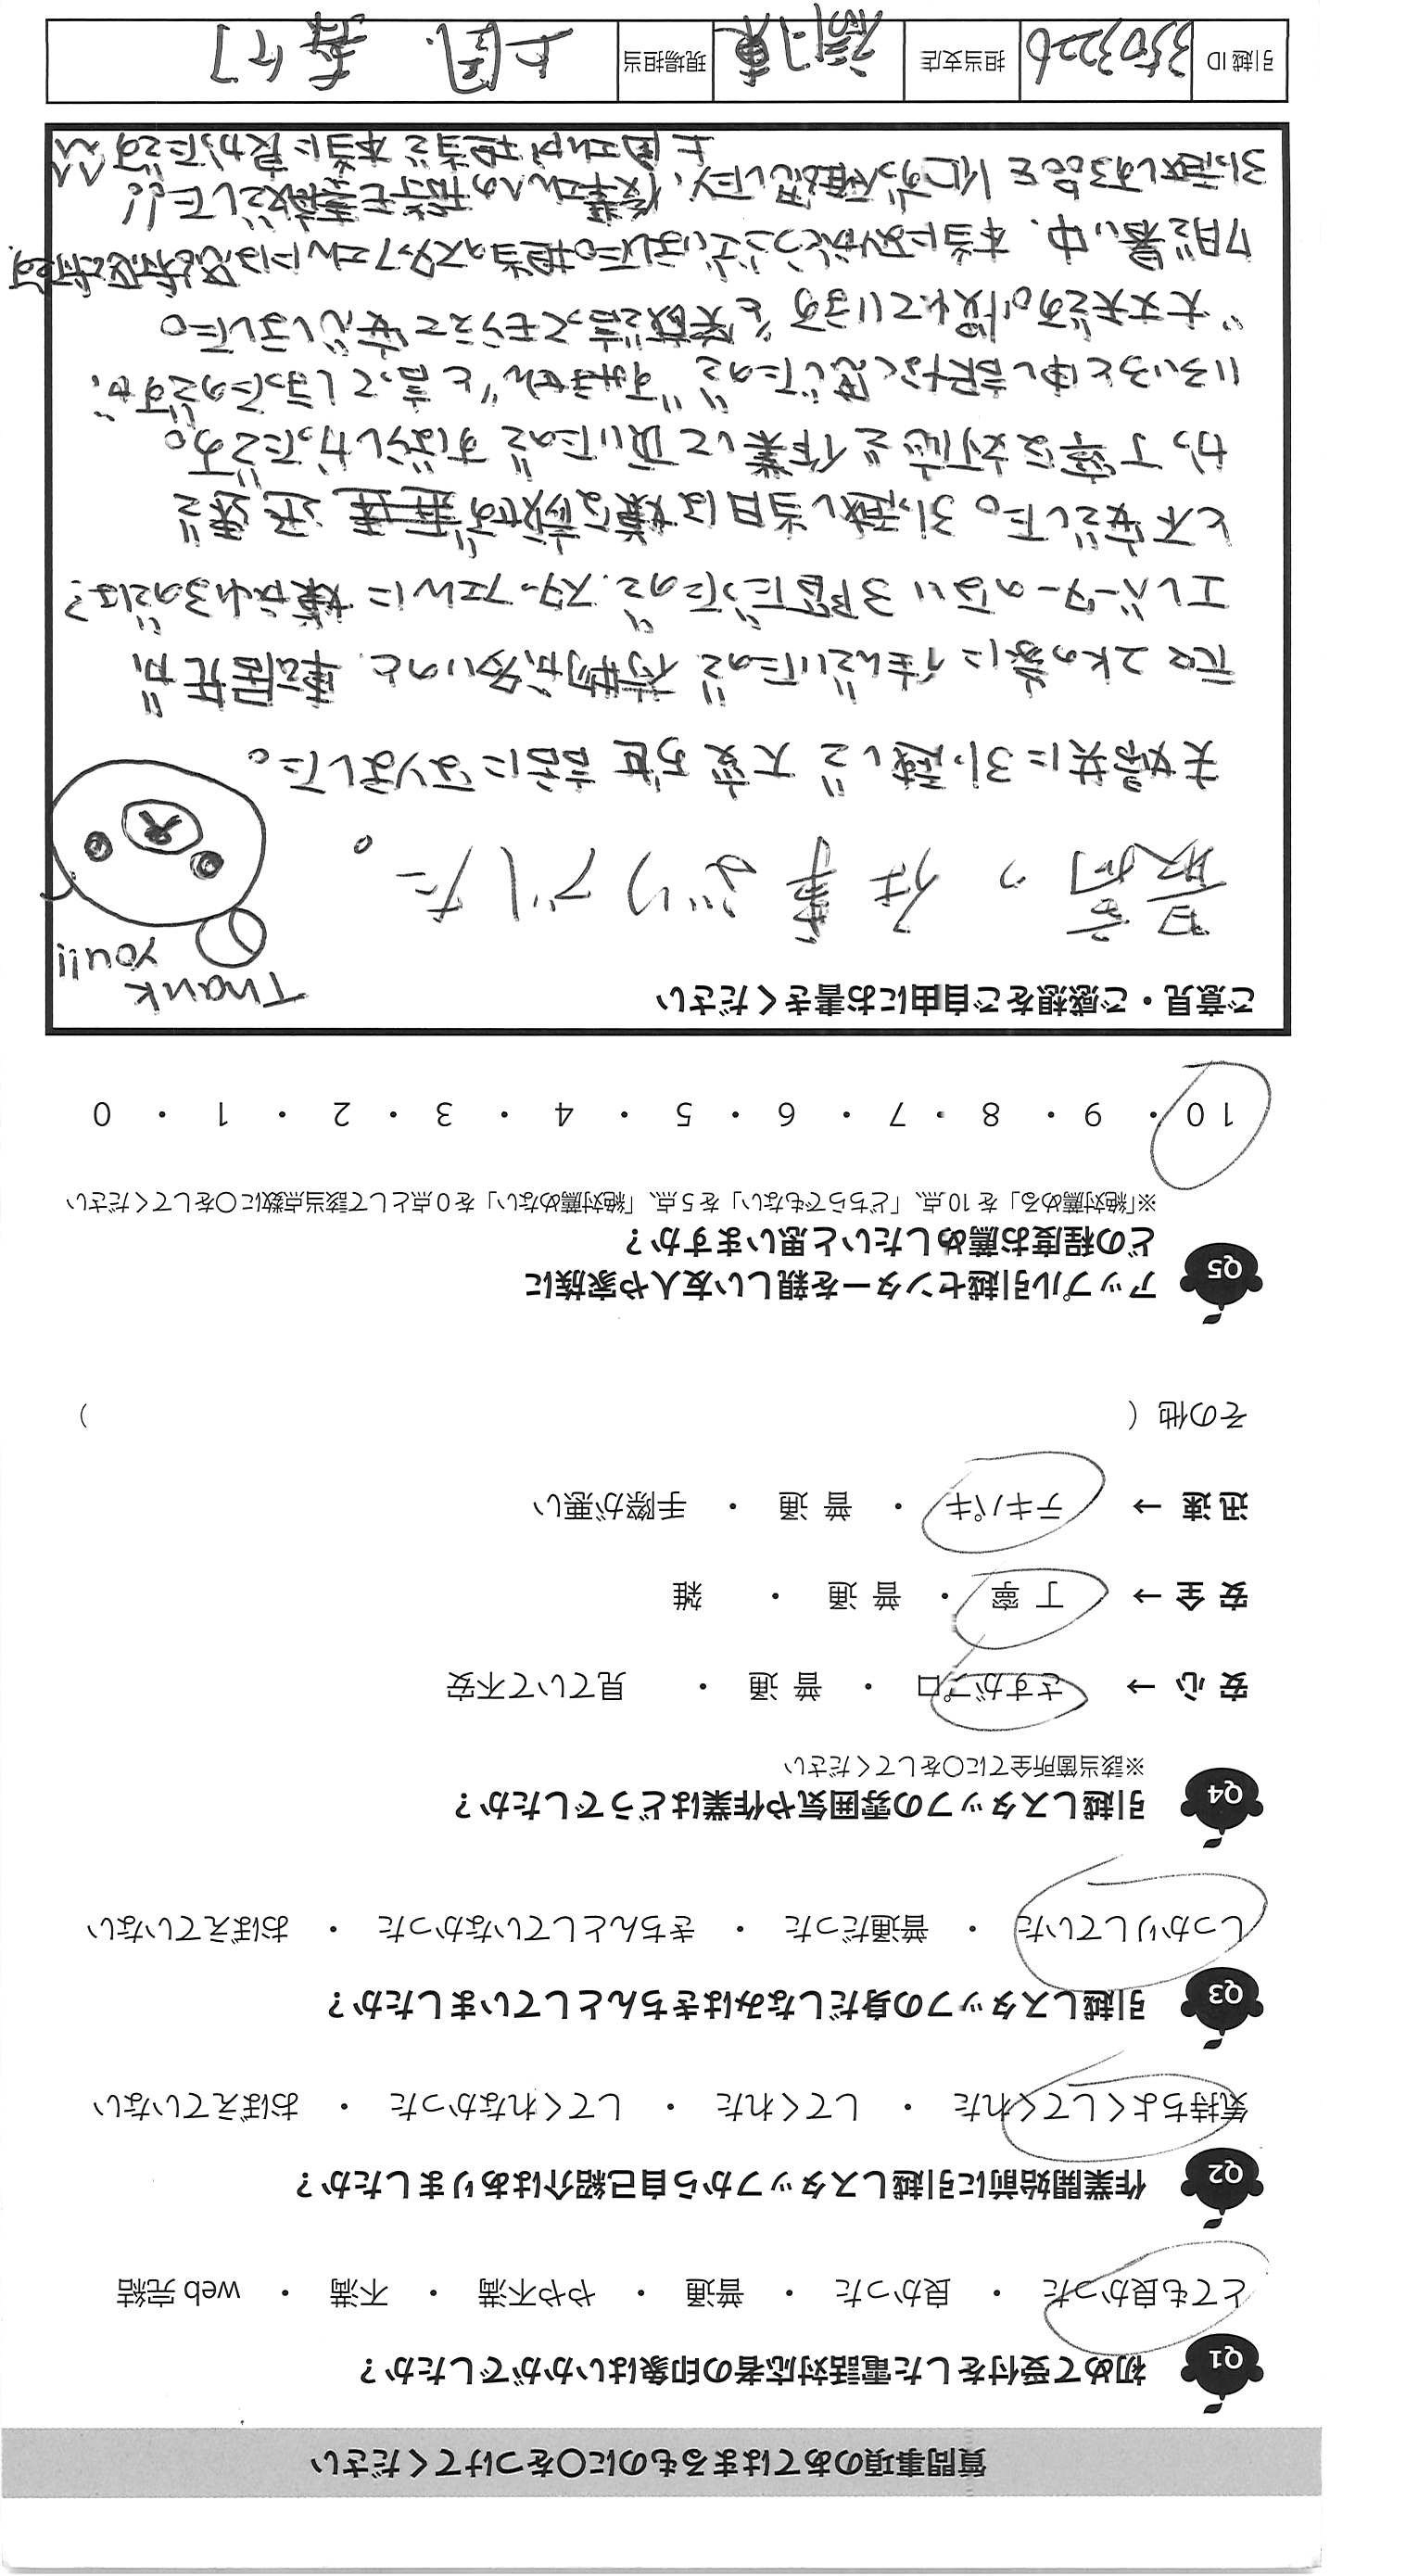 質問事項のあてはまるものに○をつけてください
Q1 初めて受付をした電話対応者の印象はいかがでしたか？
とても良かった ・ 良かった ・ 普通 ・ やや不満 ・ 不満 ・ web完結
Q2 作業開始前に引越しスタッフから自己紹介はありましたか？
気持ちよくしてくれた ・ してくれた ・ してくれなかった ・ おぼえていない
Q3 引越しスタッフの身だしなみはきちんとしていましたか？
しっかりしていた ・ 普通だった ・ きちんとしていなかった ・ おぼえていない
Q4 引越しスタッフの雰囲気や作業はどうでしたか？
※該当箇所全てに○をしてください
安 心 → さすがプロ ・ 普 通 ・ 見ていて不安
安 全 → 丁 寧 ・ 普 通 ・ 雑
迅 速 → テキパキ ・ 普 通 ・ 手際が悪い
その他（ ）
Q5 アップル引越センターを親しい友人や家族に
どの程度お薦めしたいと思いますか？
※「絶対薦める」を10点、「どちらでもない」を5点、「絶対薦めない」を0点として該当点数に○をしてください
10 ・ 9 ・ 8 ・ 7 ・ 6 ・ 5 ・ 4 ・ 3 ・ 2 ・ 1 ・ 0
ご意見・ご感想をご自由にお書きください
Thank
you!!
最高の仕事ぶりでした。
夫婦共に引っ越しで大変お世話になりました。
元々2Kの家に住んでいたので荷物が多いのと、転居先が
エレベーターのない3階だったので、スタッフさんに嫌がられるのでは？
と不安でした。引っ越し当日は嫌な顔せず 迅速で
かつ丁寧な対応と作業して頂いたので すばらしかったです。
いろいろと申し訳なく思ったので "すみません"と言ってしまったのですが、
"大丈夫です、慣れています"と笑顔で言ってもらえて安心しました。
7月で暑い中、本当にありがとうございました。担当のスタッフさんには
引っ越しする時の 作業さんへの指示も素敵でした!!
上岡さんが担当で本当に良かったです^^
引越ID 担当支店 現場担当 上岡